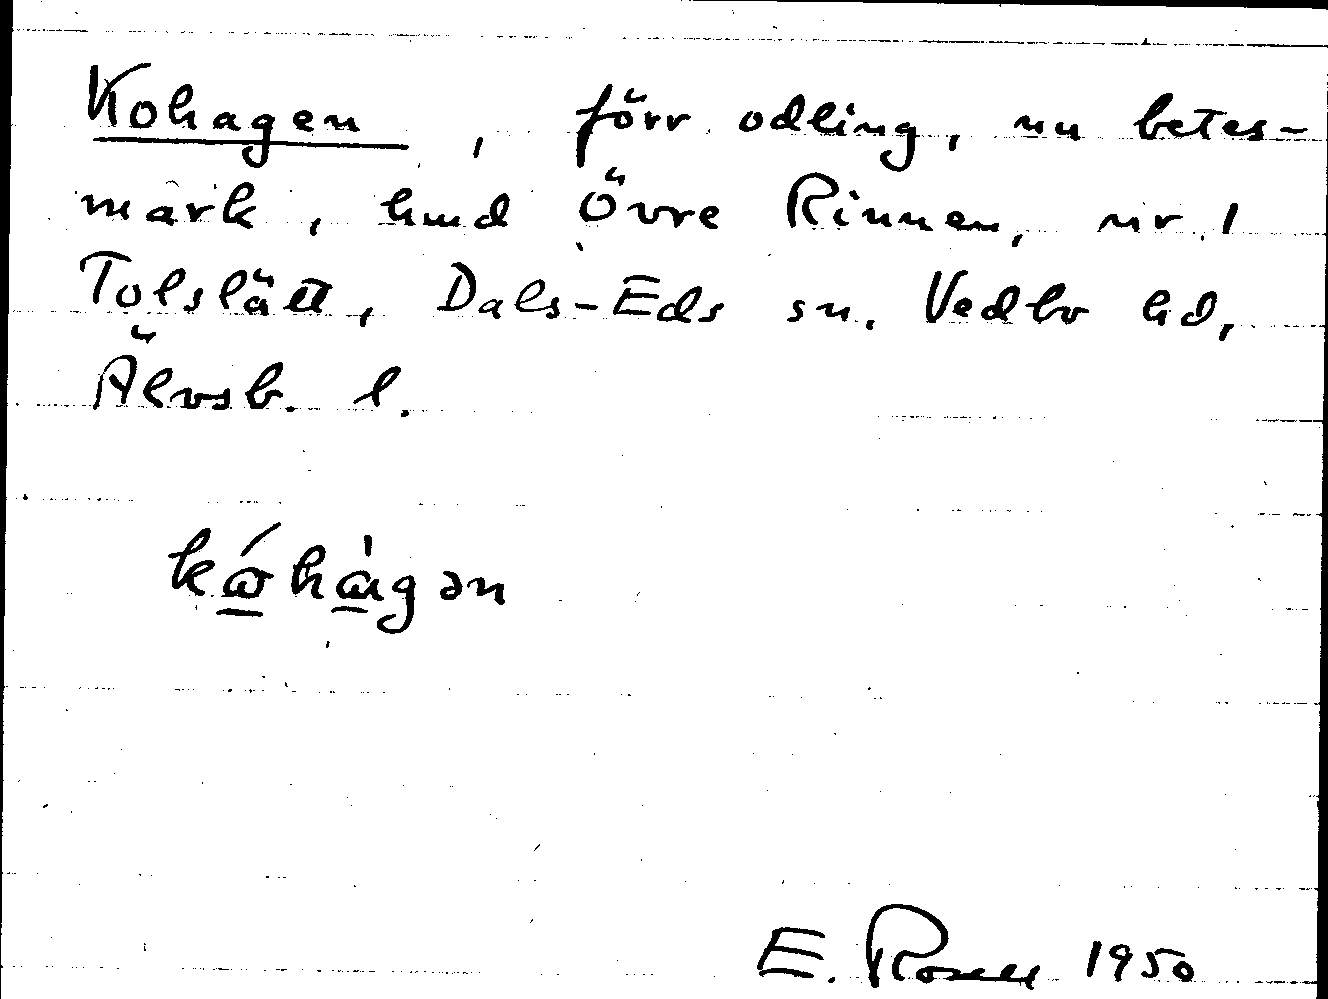 Kohagen, förr odling, nu betes-
mark, hmd Övre Rinnen, nr 1
Tolslätt, Dals-Eds sn. Vedbo hd,
Älvsb. l.
kǿhàgən
E. Rosell 1950